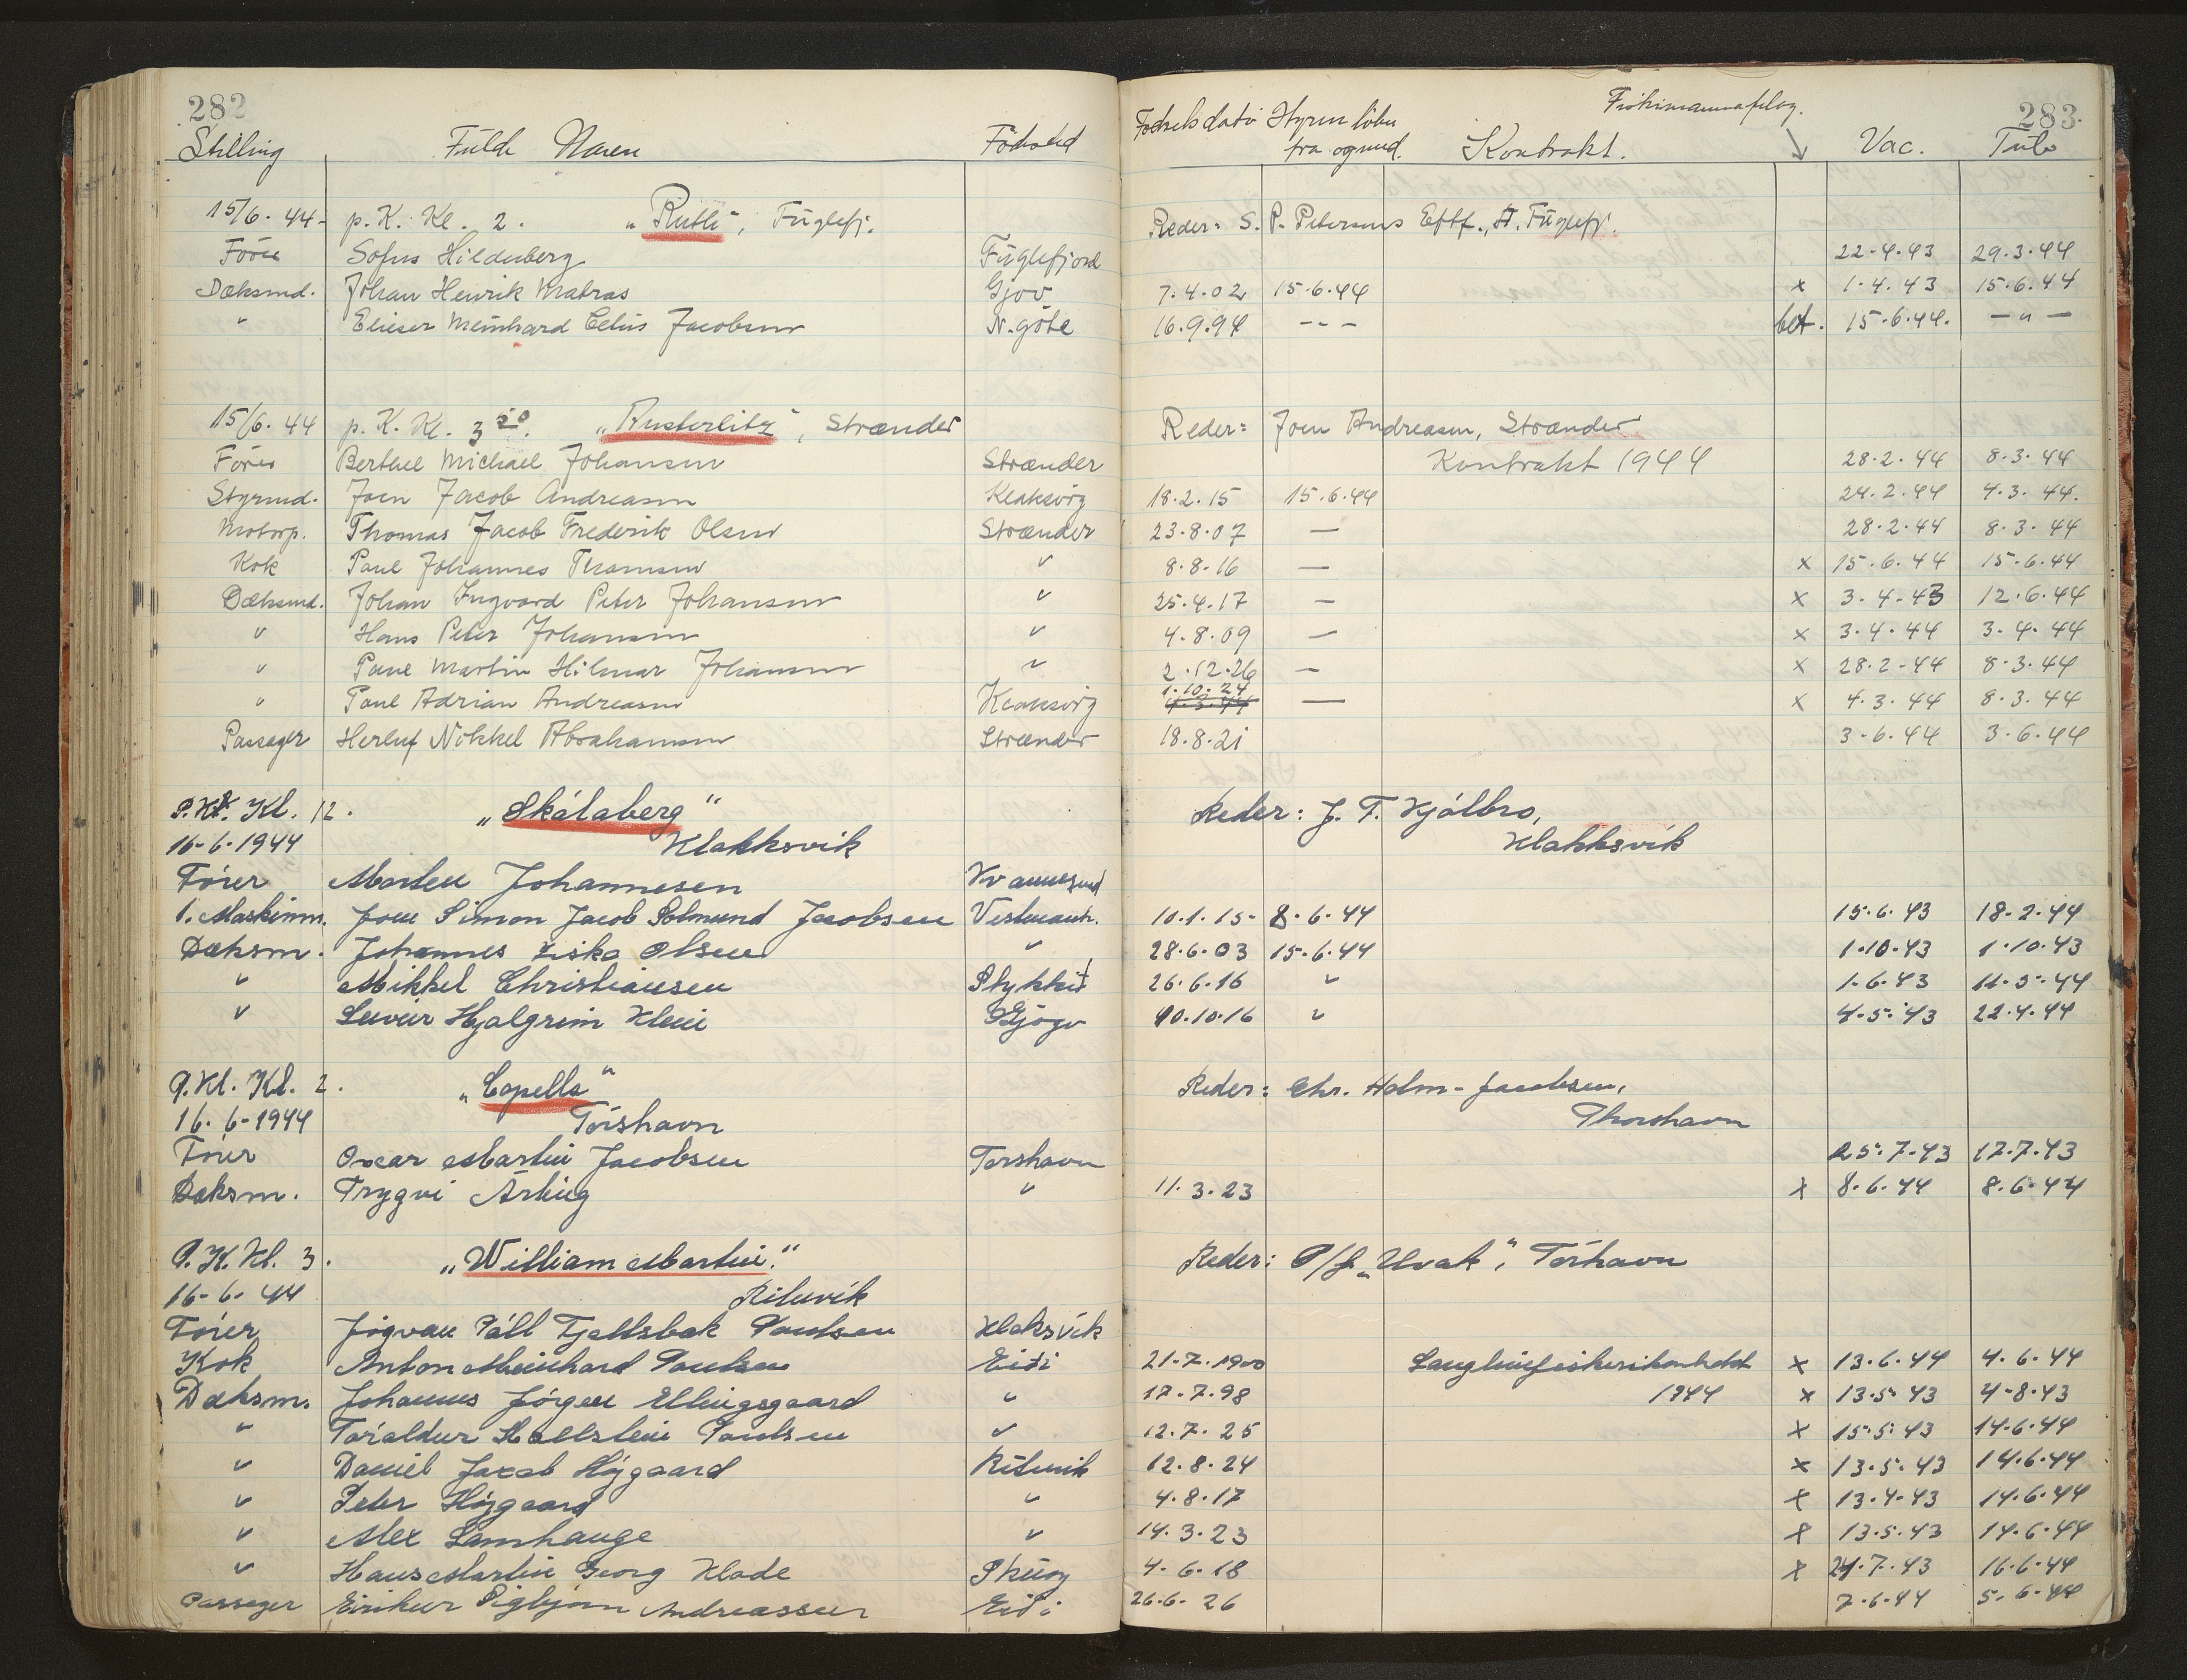 282
Stilling Fulde Navn Födested
15/6. 44- p. K. Kl. 2. "Ruth", Fuglefj.
Förer Sofus Hildenberg Fuglefjord
Dæksmd. Johan Henrik Matras Gjov
" Elieser Meinhard Celius Jacobsen N. göte
15/6. 44 p. K. Kl. 3 50. "Austerlitz", Strænder
Förer Berthel Michael Johansen Strænder
Styrmd. Joen Jacob Andreasen Klaksvig
Motorp. Thomas Jacob Frederik Olsen Strænder
Kok Poul Johannes Thomsen "
Dæksmd. Johan Ingvard Peter Johansen "
" Hans Peter Johansen "
" Poul Martin Hilmar Johansen "
" Poul Adrian Andreasen Klaksvig
Passager Herluf Nikkel Abrahamsen Strænder
P. Kl. Kl. 12. "Skálaberg"
16-6-1944 Klakksvik
Förer Morten Johannesen Kvannesund
1. Maskinm. Joen Simon Jacob Solmund Jacobsen Vestmanh.
Dæksm. Johannes Ziska Olsen "
" Mikkel Christiansen Stykkið
" Leivur Hjalgrim Klein Gjógv
P. Kl. Kl. 2. "Capella"
16. 6-1944 Tórshavn
Förer Oscar Martin Jacobsen Torshavn
Dæksm. Trygvi Árting "
P. K. Kl. 3. "William Martin."
16-6-44 Rituvík
Förer Jógvan Páll Fjallsbak Poulsen Klaksvík
Kok Anton Meinhard Poulsen Eiði
Dæksm. Johannes Jörgen Ellingsgaard "
" Tóraldur Hallstein Poulsen "
" Daniel Jacob Højgaard Rituvik
" Peter Højgaard "
" Alex Lamhauge "
" Hans Martin Georg Klade
Passager Eirikur Andreassen Eiði
283.
Födselsdato Hyren löber fra ogmed. Kontrakt. Fiskimannafelag. Vac. Tub
Reder: S. P. Petersens Eftf., Fuglefj.
22-4.43 29.3.44
7.4.02 15.6.44 x 1.4.43 15.6.44
16.9.94 - - - bet. 15.6.44. — " —
Reder: Joen Andreasen, Strænder
Kontrakt 1944 28.2.44 8.3.44
18.2.15 15.6.44 24.2.44 4.3.44.
23.8.07 — 28.2.44 8.3.44
8.8.16 — x 15.6.44 15.6.44
25.4.17 — x 3.4.43 12.6.44
4.8.09 — x 3.4.44 3.4.44
2.12.26 — x 28.2.44 8.3.44
1.10.24 — x 4.3.44 8.3.44
18.8.21 3.6.44 3.6.44
Reder: J. F. Kjølbro,
Klakksvík
10.1.15- 8.6.44 15.6.43 18.2.44
28.6.03 15.6.44 1.10.43 1.10.43
26.6.16 " 1.6.43 11.5.44
10.10.16 " 4.5.43 22.4.44
Reder: Chr. Holm-Jacobsen,
Thorshavn
25.7.43 17.7.43
11.3.23 x 8.6.44 8.6.44
Reder: P/f. "Hvak", Tórhavn
21.7.1900 Langlinefiskerikontrakt x 13.6.44 4.6.44
17.7.98 1944 x 13.5.43 4.8.43
12.7.25 x 15.5.43 14.6.44
12.8.24 x 13.5.43 14.6.44
4.8.17 x 13.4.43 14.6.44
14.3.23 x 13.5.43 14.6.44
4.6.18 x 24.7.43 16.6.44
26.6.26 7.6.44 5.6.44